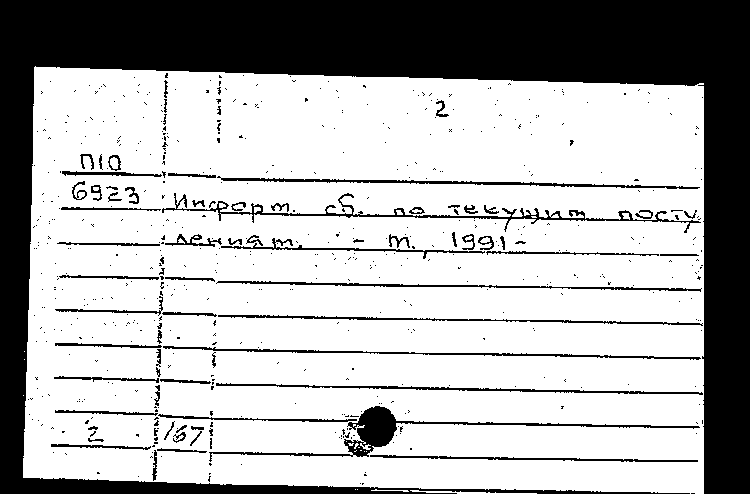 2
П10
6923 Информ. сб. по текущим посту
лениям. - М., 1991-
2 167